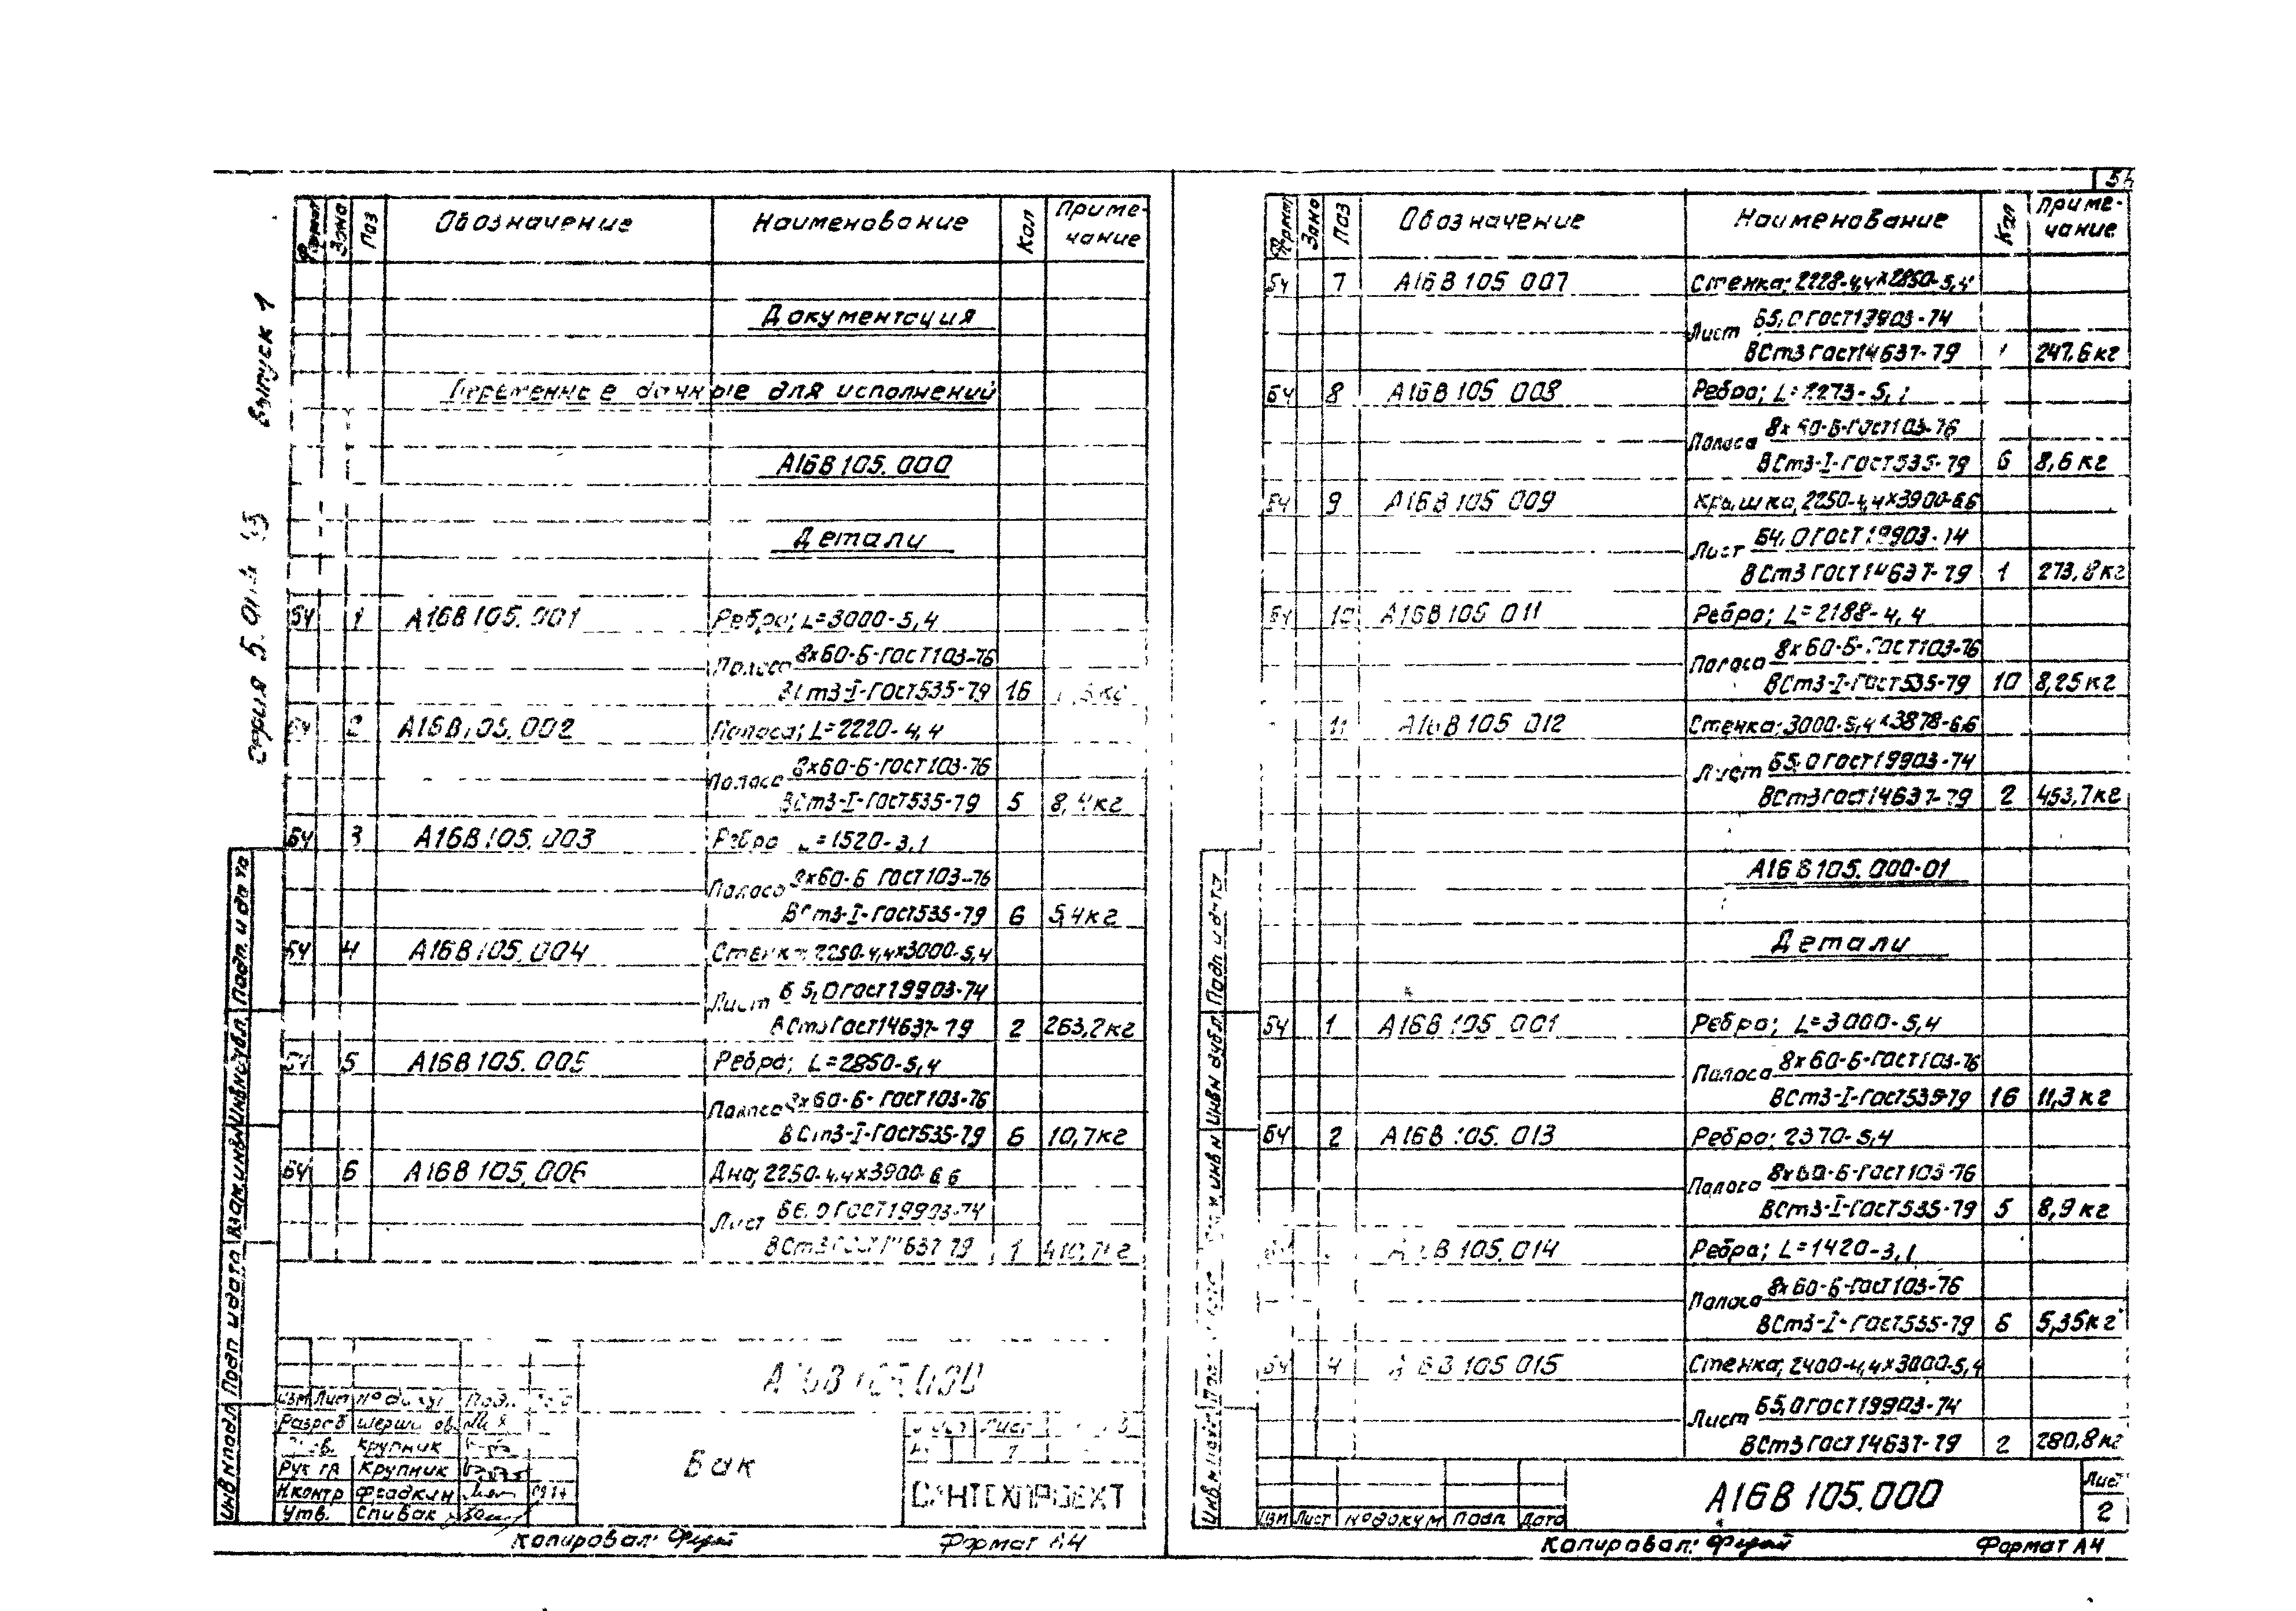 Формат Зона Поз Обозначение Наименование Кол Приме-
чание
Документация
Переменные данные для исполнений
А16В105.000
Детали
БЧ 1 А16В105.001 Ребро; L=3000-5,4
Полоса 8х60-Б-ГОСТ103-76
ВСт3-I-ГОСТ535-79 16
БЧ 2 А16В105.002 Полоса; L=2220-4,4
Полоса 8х60-Б-ГОСТ103-76
ВСт3-I-ГОСТ535-79 5 8,4кг
БЧ 3 А16В105.003 Ребро L=1520-3,1
Полоса 8х60-Б ГОСТ103-76
ВСт3-I-ГОСТ535-79 6 5,4кг
БЧ 4 А16В105.004 Стенка; 2250-4,4х3000-5,4
Лист Б 5,0 ГОСТ19903-74
ВСт3 ГОСТ14637-79 2 263,2кг
БЧ 5 А16В105.005 Ребро; L=2850-5,4
Полоса 8х60-Б-ГОСТ103-76
ВСт3-I-ГОСТ535-79 6 10,7кг
БЧ 6 А16В105.006 Дно; 2250-4,4х3900-6,6
Лист Б6,0 ГОСТ19903-74
ВСт3 ГОСТ14637-79 1 410,7кг
серия 5.01 выпуск 1
Инв N подл Подп и дата Взам.инв.N Инв N дубл. Подп. и дата
А16В105.000
Изм Лист N° докум Подп.
Разраб
Крупник
Рук гр Крупник
Н.контр Фрадкин
Утв. Спивак
Бак
Лист
1
САНТЕХПРОЕКТ
Копировал: Формат А4
54
Формат Зона Поз Обозначение Наименование Кол Приме-
чание
БЧ 7 А16В105 007 Стенка; 2228-4,4х2850-5,4
Лист Б5,0 ГОСТ19903-74
ВСт3 ГОСТ14637-79 1 247,6кг
БЧ 8 А16В105 008 Ребро; L=2273-5,1
Полоса 8х60-Б-ГОСТ103-76
ВСт3-I-ГОСТ535-79 6 8,6кг
БЧ 9 А16В105 009 Крышка, 2250-4,4х3900-6,6
Лист Б4,0 ГОСТ19903-74
ВСт3 ГОСТ14637-79 1 273,8кг
БЧ 10 А16В105 011 Ребро; L=2188-4,4
Полоса 8х60-Б-ГОСТ103-76
ВСт3-I-ГОСТ535-79 10 8,25кг
11 А16В105 012 Стенка; 3000-5,4х3878-6,6
Лист Б5,0 ГОСТ19903-74
ВСт3 ГОСТ14637-79 2 453,7кг
А16В105.000-01
Детали
БЧ 1 А16В105 001 Ребро; L=3000-5,4
Полоса 8х60-Б-ГОСТ103-76
ВСт3-I-ГОСТ535-79 16 11,3кг
БЧ 2 А16В105.013 Ребро; 2370-5,4
Полоса 8х60-Б-ГОСТ103-76
ВСт3-I-ГОСТ535-79 5 8,9кг
А16В105.014 Ребра; L=1420-3,1
Полоса 8х60-Б-ГОСТ103-76
ВСт3-I-ГОСТ535-79 6 5,35кг
БЧ 4 А16В105 015 Стенка; 2400-4,4х3000-5,4
Лист Б5,0 ГОСТ19903-74
ВСт3 ГОСТ14637-79 2 280,8кг
Инв N подл Инв N дубл Подп и дата
Изм Лист N° докум Подп. Дата
А16В105.000
Лист
2
Копировал: Формат А4